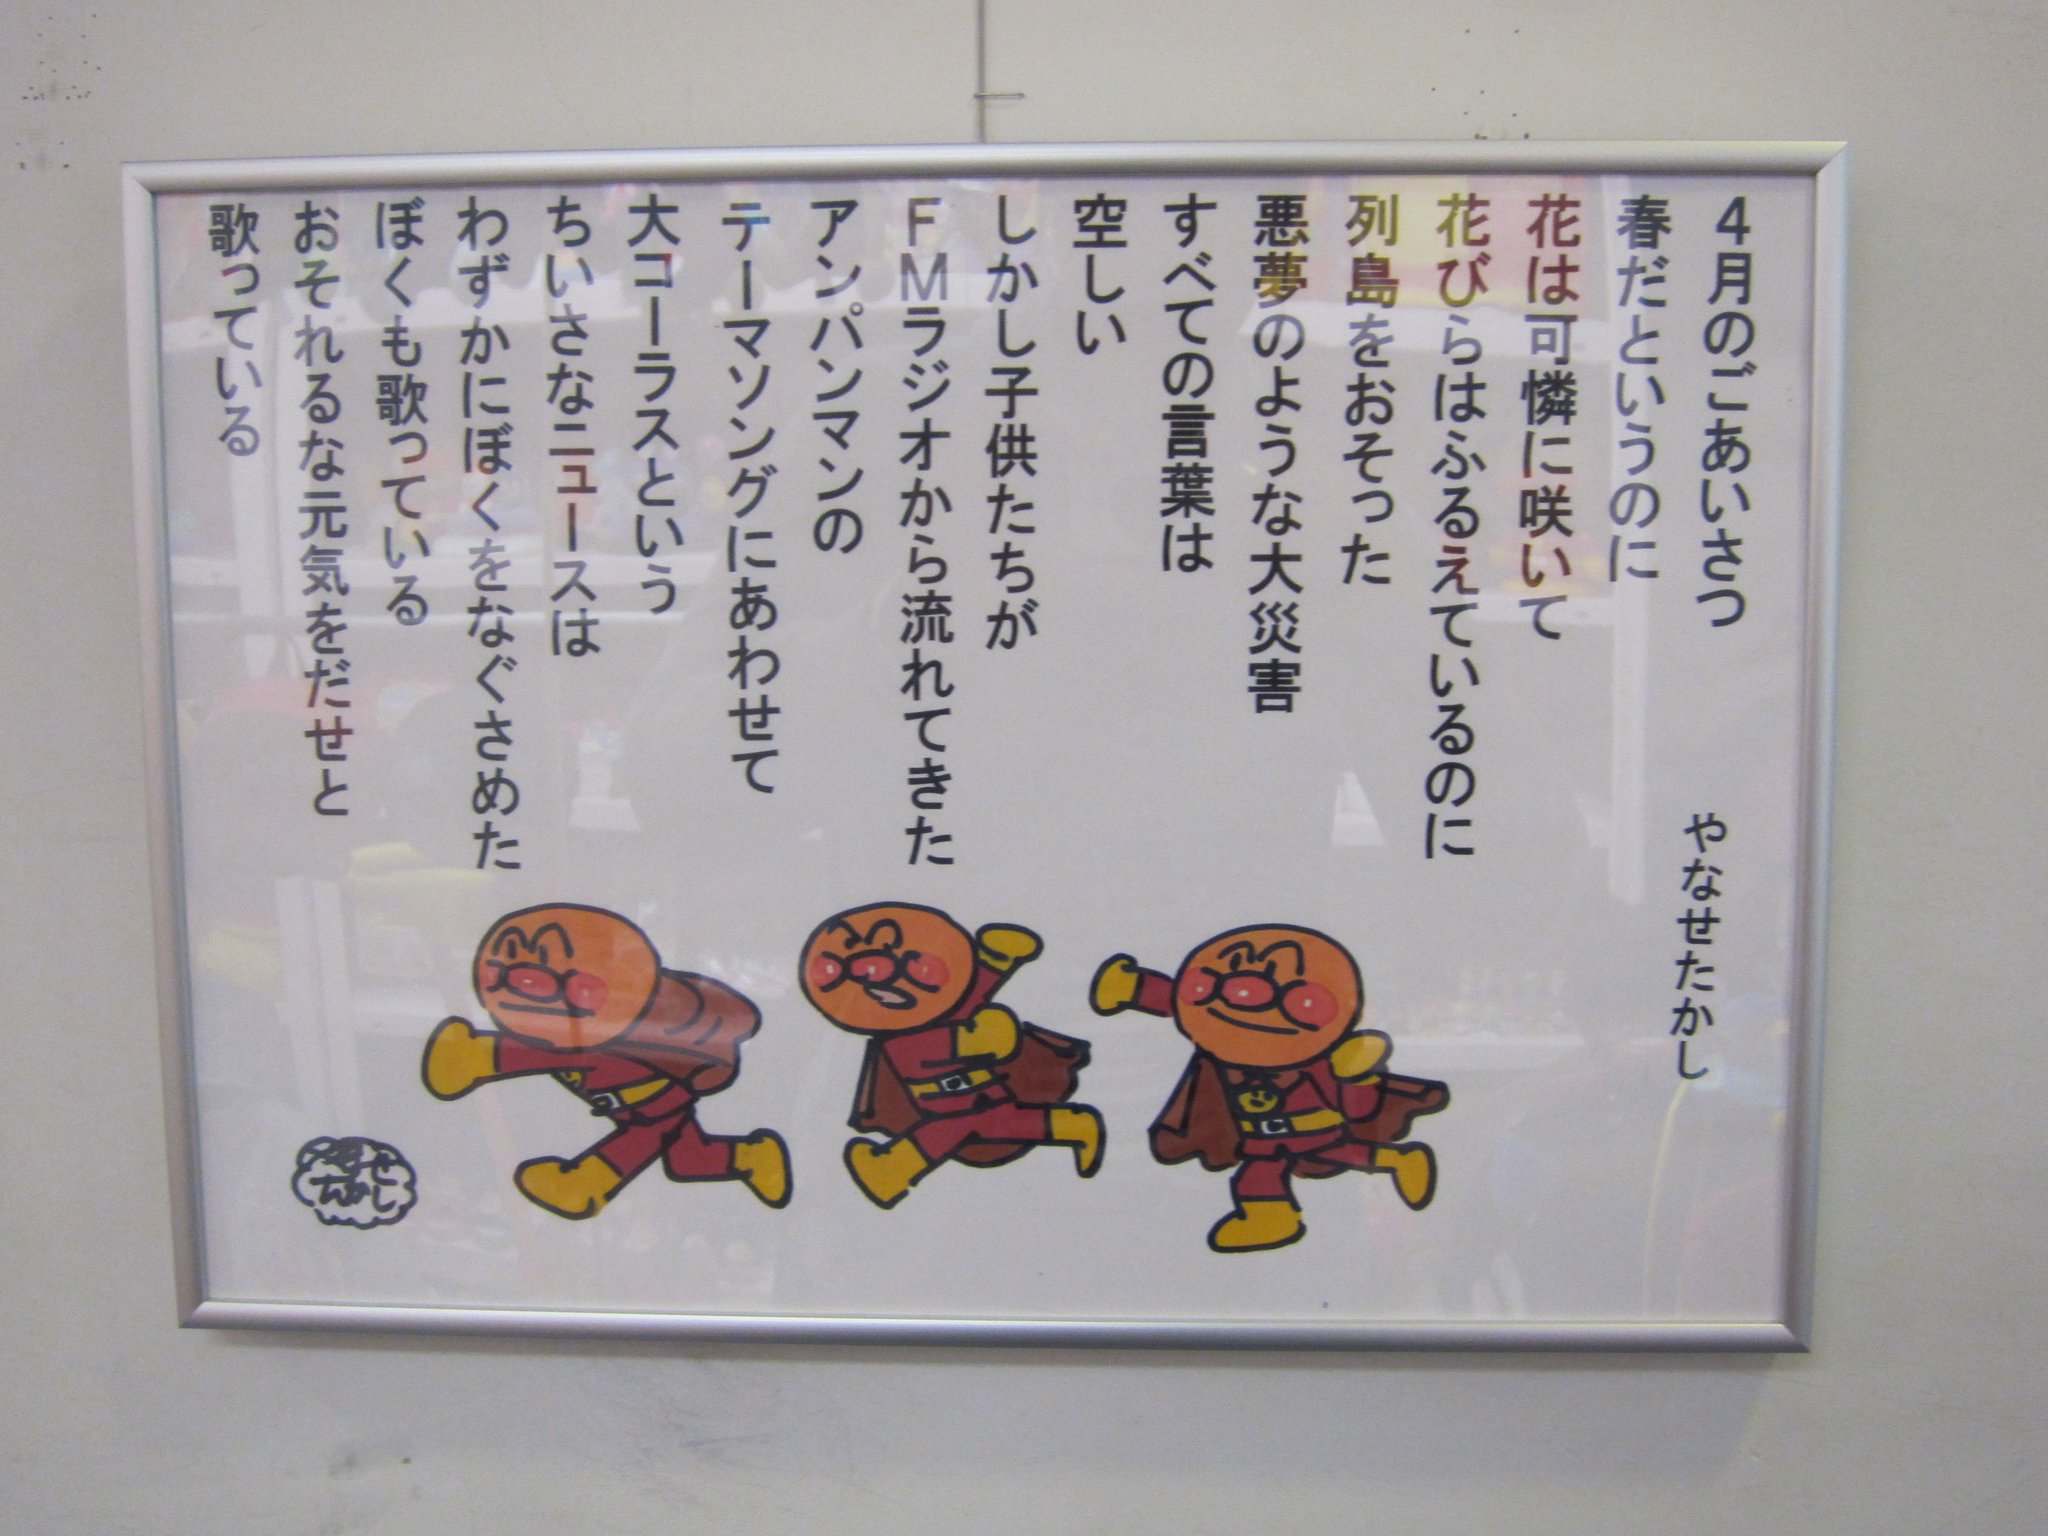 4月のごあいさつ
やなせたかし
春だというのに
花は可憐に咲いて
花びらはふるえているのに
列島をおそった
悪夢のような大災害
すべての言葉は
空しい
しかし子供たちが
FMラジオから流れてきた
アンパンマンの
テーマソングにあわせて
大コーラスという
ちいさなニュースは
わずかにぼくをなぐさめた
ぼくも歌っている
おそれるな元気をだせと
歌っている
やなせ
たかし